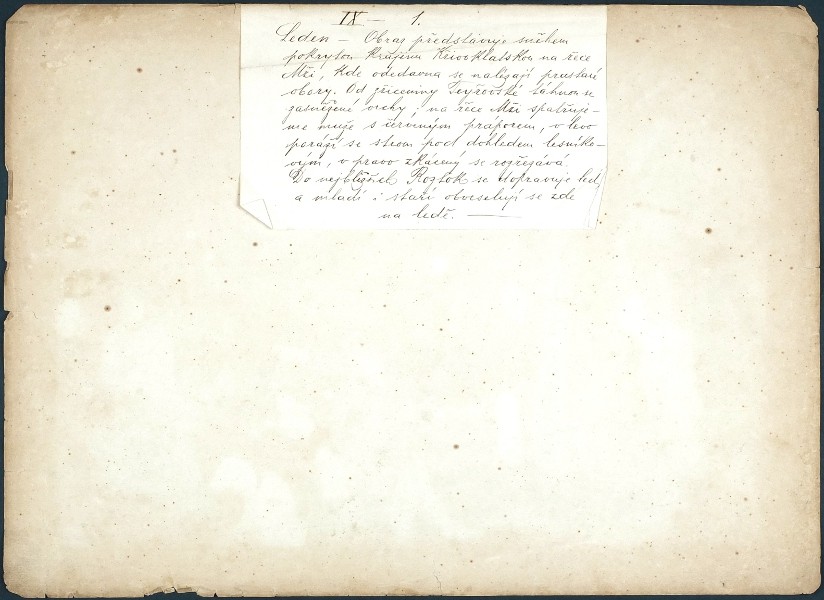 IX – 1.
Leden – Obraz představuje sněhem
pokrytou krajinu Křivoklátskou na řece
Mži, kde odedávna se nalézají prastaré
obory. Od zříceniny Teyřovské táhnou se
zasněžené vrchy; na řece Mži spatřuje-
me muže s červeným práporem, v levo
poráží se strom pod dohledem lesníko-
vým, v pravo zkácený se rozřezává.
Do nejbližších Roztok se dopravuje led,
a mladí i staří obveselují se zde
na ledě. —